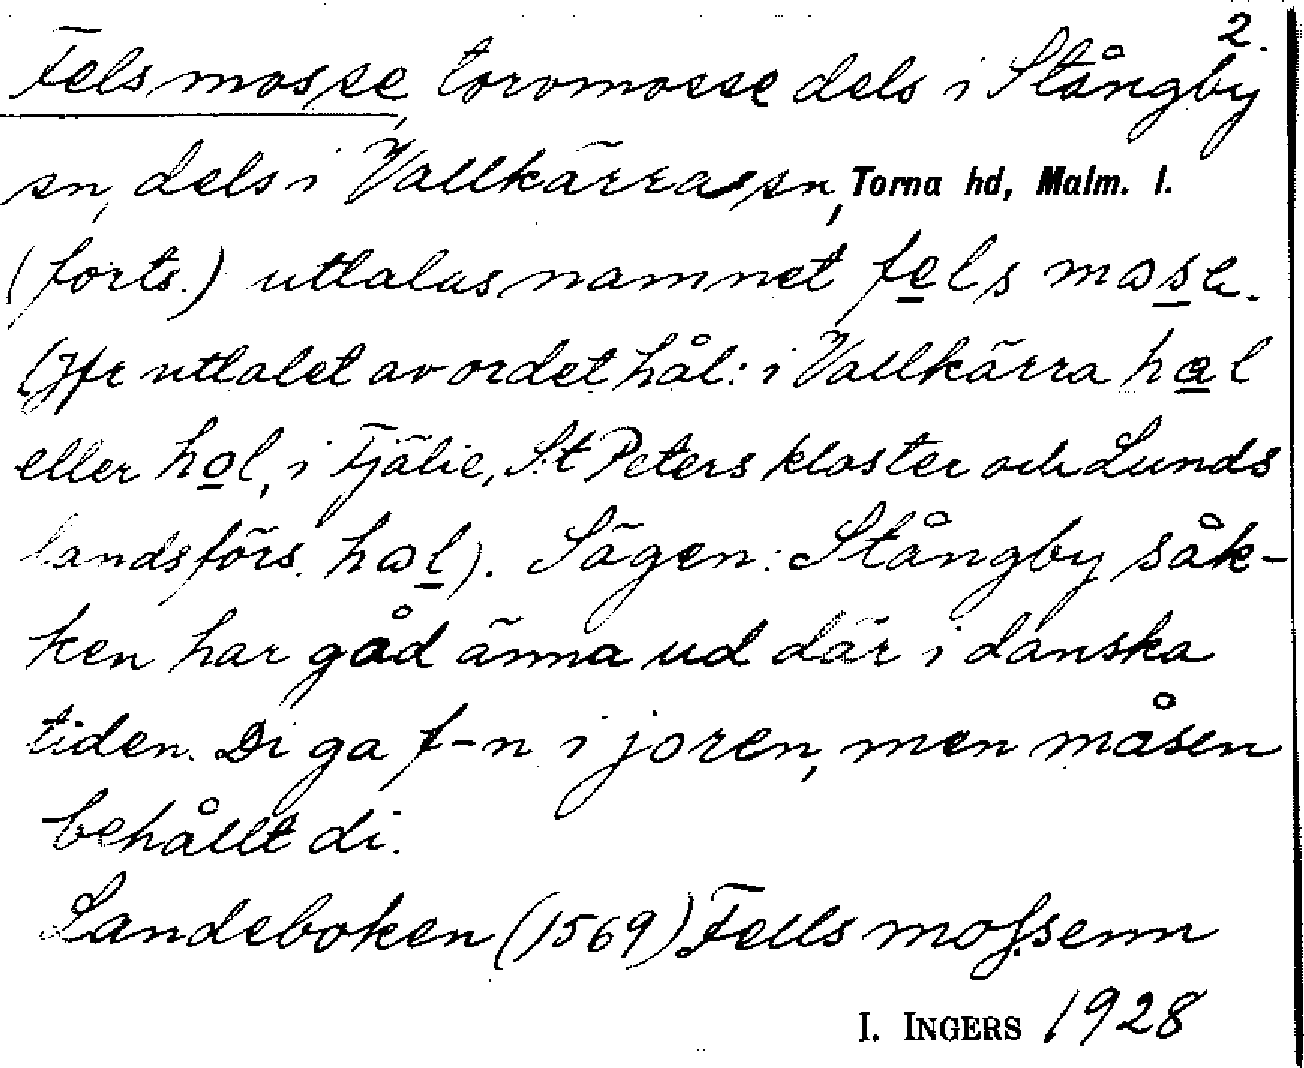 2.
Fels mosse, torvmosse dels i Stångby
sn, dels i Vallkärra sn, Torna hd, Malm. l.
(forts.) uttalas namnet fels mose.
(Jfr uttalet av ordet hål: i Vallkärra hal
eller hol, i Fjälie, St Peters kloster och Lunds
landsförs. hol). Sägen: Stångby såk-
ken har gåd änna ud där i danska
tiden. Di ga f-n i joren, men måsen
behållt di.
Landeboken (1569) Fells mossenn
I. INGERS 1928